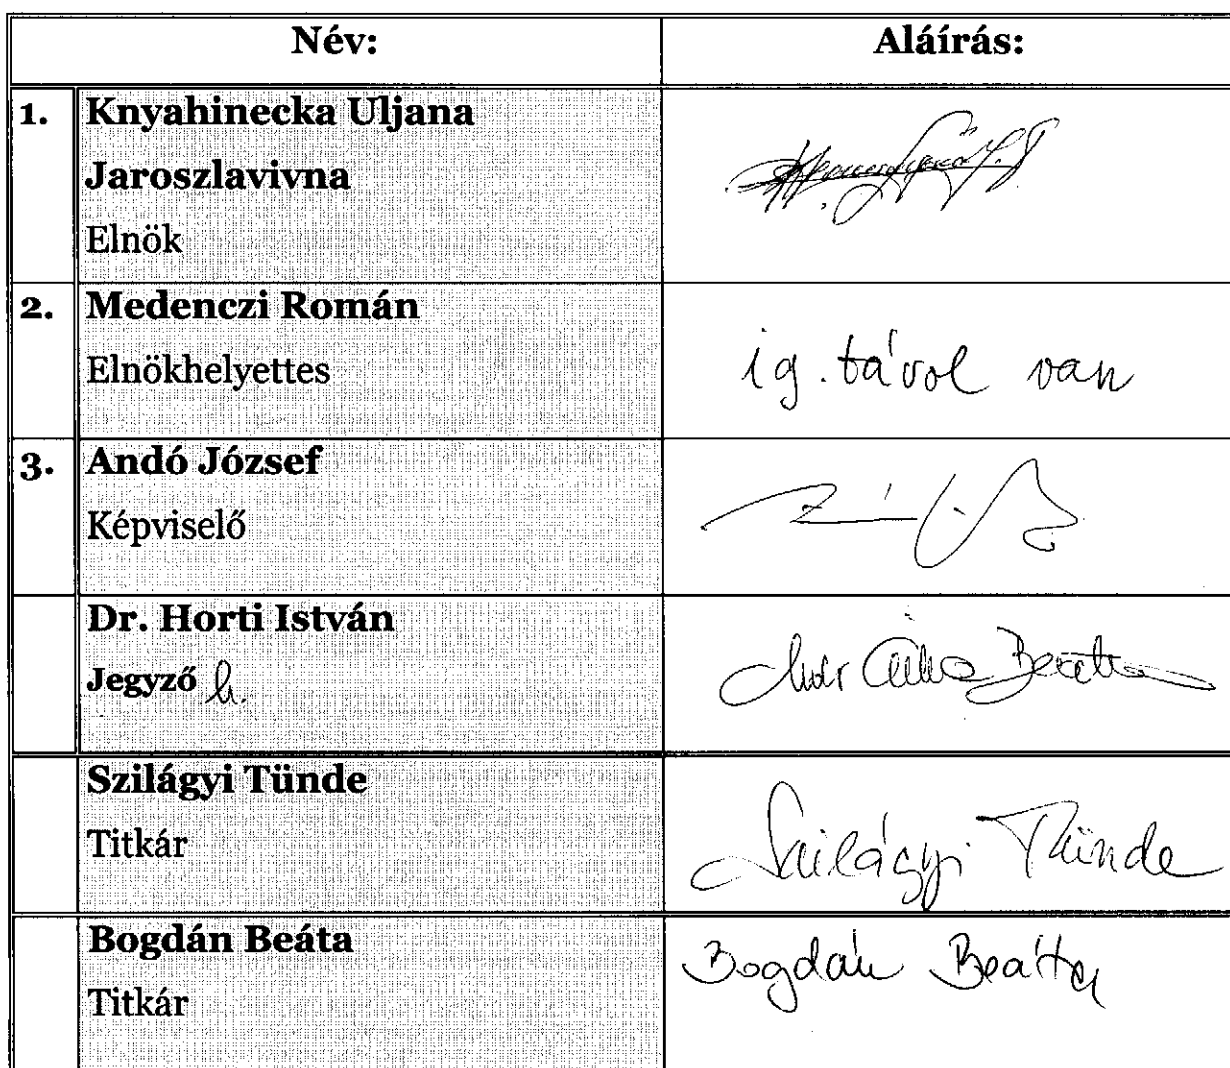 Név: Aláírás:
1. Knyahinecka Uljana
Jaroszlavivna
Elnök
2. Medenczi Román
Elnökhelyettes
ig. távol van
3. Andó József
Képviselő
Dr. Horti István
Jegyző h.
Beáta
Szilágyi Tünde
Titkár
Szilágyi Tünde
Bogdán Beáta
Titkár
Bogdán Beáta